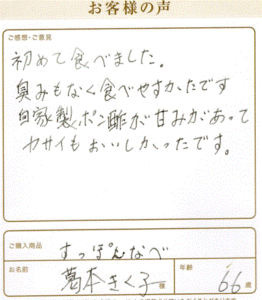 お客様の声
ご感想・ご意見
初めて食べました。
臭みもなく食べやすかったです
自家製ポン酢が甘みがあって
ヤサイもおいしかったです。
ご購入商品
すっぽんなべ
お名前
葛本きく子 様
年齢
66 歳